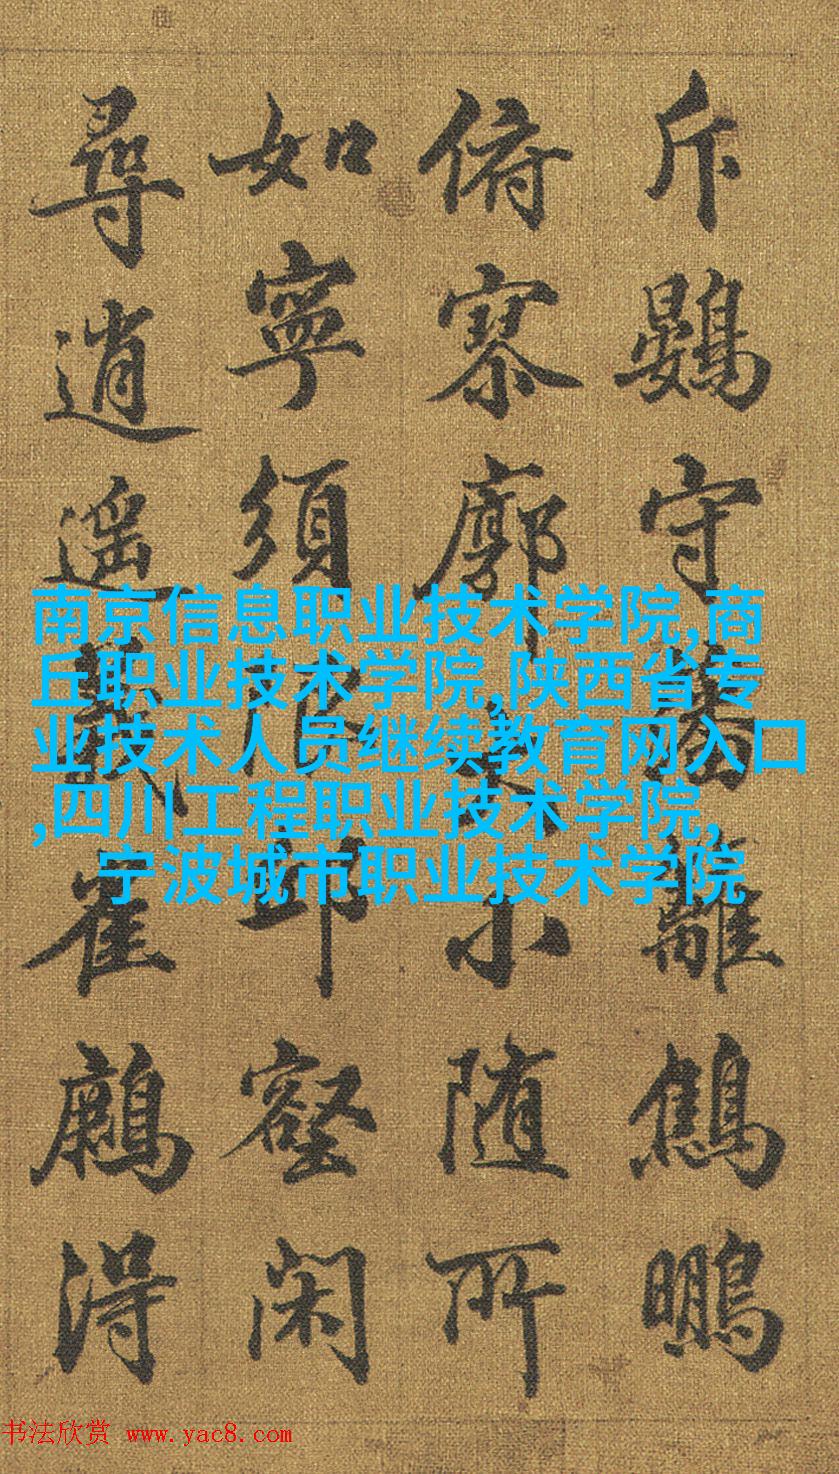 斥鷃守鷦鵬
俯寥廓大小随所
如寧須邱壑閑
尋逍遥義雀得
南京信息职业技术学院,商
丘职业技术学院,陕西省专
业技术人员继续教育网入口
,四川工程职业技术学院,
宁波城市职业技术学院
书法欣赏 www.yac8.com